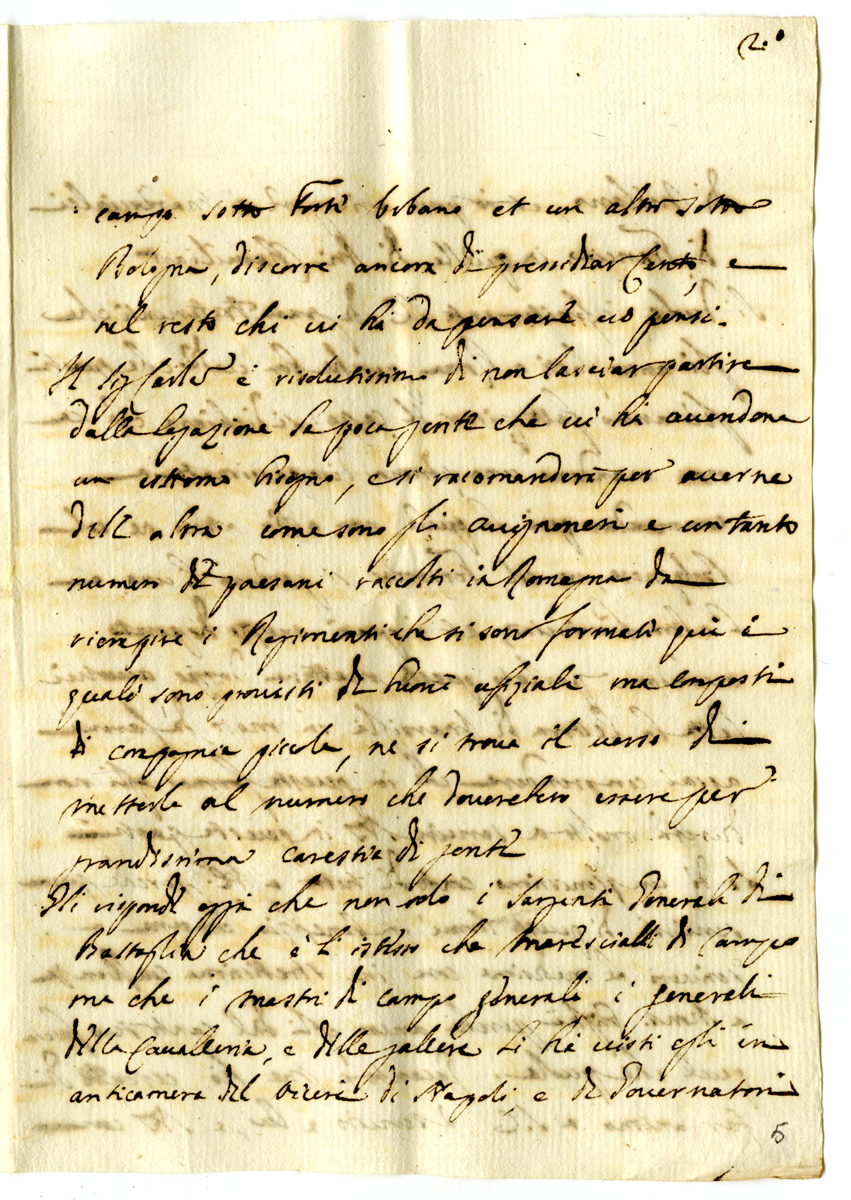 2.°
campo sotto Forte Urbano et un altro sotto
Bologna, discorre ancora di pressidiar Cento, e
nel resto chi vi hà da pensare vo pensi.
Il Sig Carlo è risolutissimo di non lasciar partire
dalla legazione la poca gente che vi hà avendone
un estremo bisogno, e si racomanderà per averne
dell altra come sono gli Avignonesi e un tanto
numero di paesani raccolti in Romagna da
riempire i Regimenti che si sono formati quì i
quali sono provisti di buoni uffiziali ma composti
di compagnia picole, ne si trova il verso di
metterle al numero che doverebero essere per
grandissima carestia di gente
Gli rispondi che non solo i Sargenti Generali di
Battaglia che è l istesso che Marescialli di Campo
ma che i mastri di campo generali i generali
della Cavalleria, e delle gallere li hà visti essi in
anticamera del Viceré di Napoli, e di Governatori
5